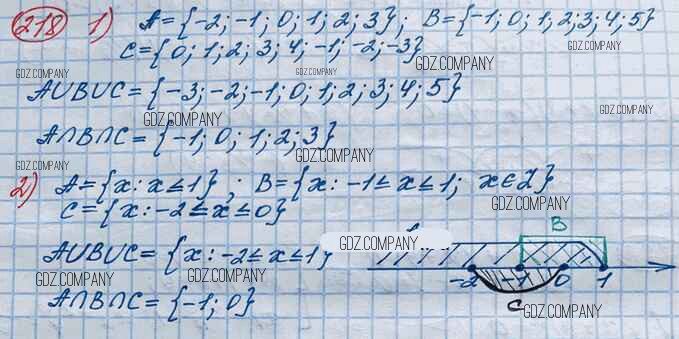 218 1) A = {-2; -1; 0; 1; 2; 3}; B = {-1; 0; 1; 2; 3; 4; 5}
C = {0; 1; 2; 3; 4; -1; -2; -3}
GDZ.COMPANY
GDZ.COMPANY
GDZ.COMPANY
GDZ.COMPANY
A∪B∪C = {-3; -2; -1; 0; 1; 2; 3; 4; 5}
GDZ.COMPANY
GDZ.COMPANY
A∩B∩C = {-1; 0; 1; 2; 3}
GDZ.COMPANY
GDZ.COMPANY
2) A = {x: x ≤ 1}; B = {x: -1 ≤ x ≤ 1; x ∈ Z}
C = {x: -2 ≤ x ≤ 0}
GDZ.COMPANY
B
A∪B∪C = {x: -2 ≤ x ≤ 1}
GDZ.COMPANY
GDZ.COMPANY
GDZ.COMPANY
-2 -1 0 1
A∩B∩C = {-1; 0}
C
GDZ.COMPANY